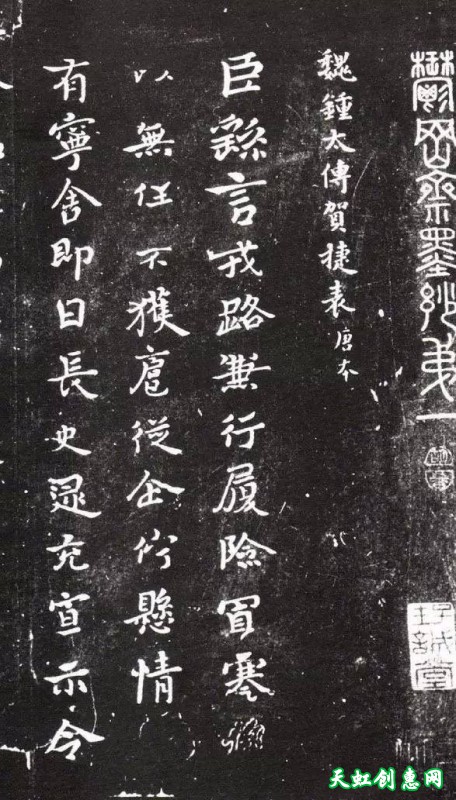 鬱岡齋墨妙第一
魏鍾太傅賀捷表 唐本
臣繇言戎路兼行履險冒寒
以無任不獲扈從企佇懸情
有寧舍即日長史逯充宣示令
天虹创惠网